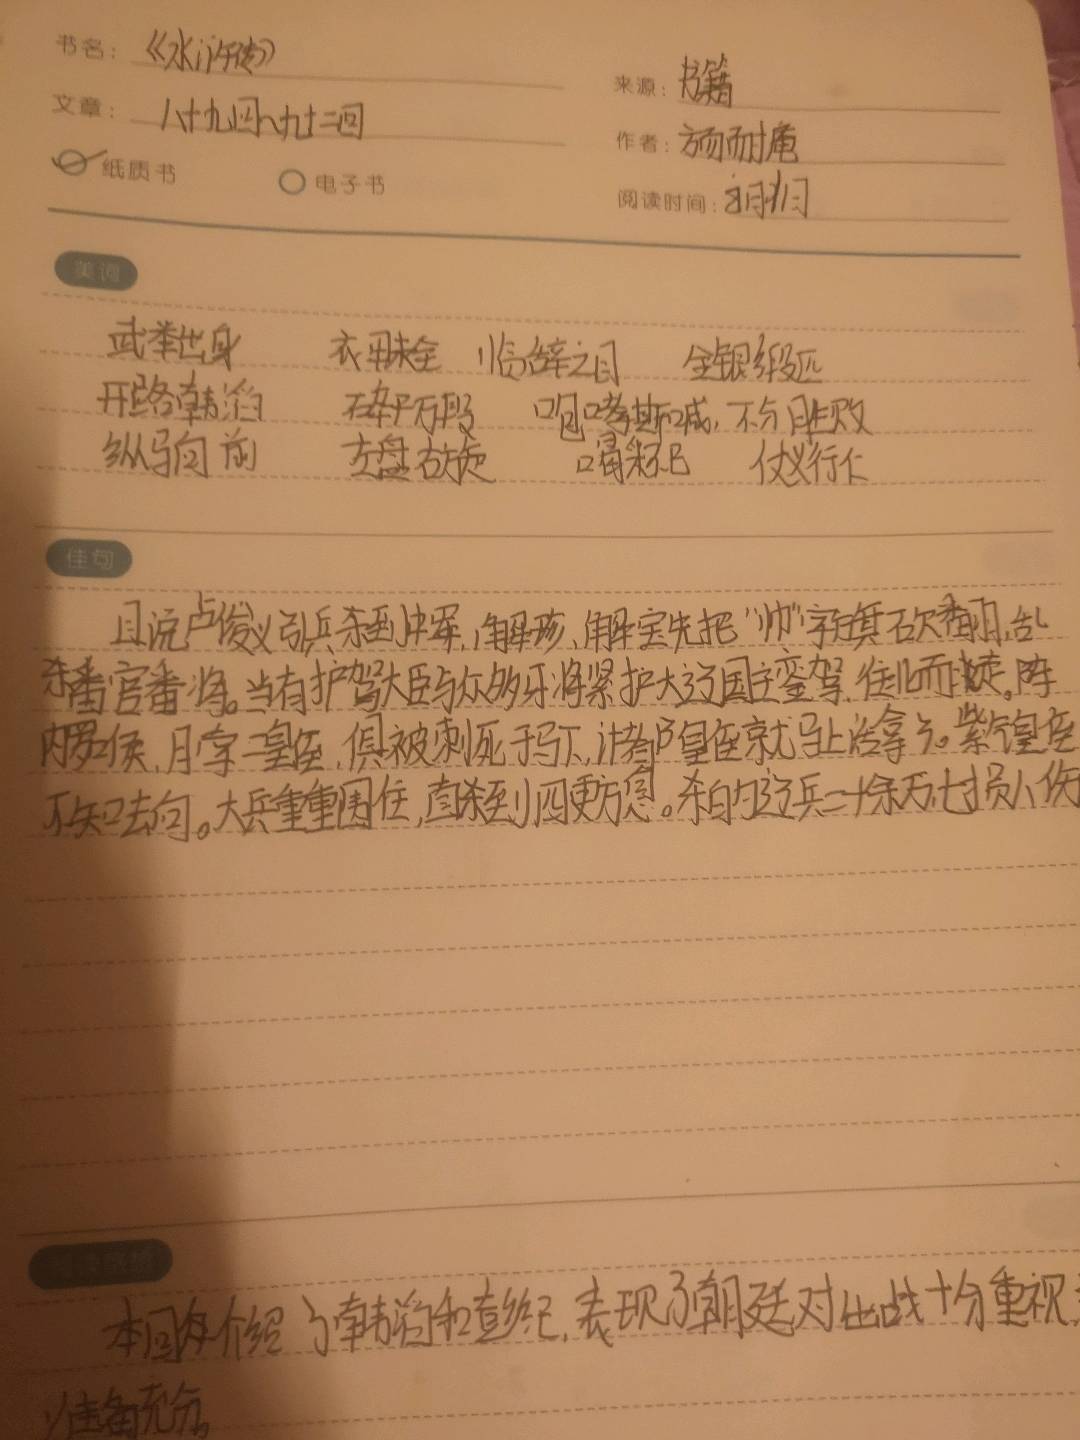 书名：《水浒传》
来源：书籍
文章：八十九回八九十二回
作者：施耐庵
纸质书 电子书
阅读时间：
美词
武举出身 衣甲缺全 临辞之日 金银缎匹
开路韩滔 碎尸万段 咆哮嘶喊，不分胜败
纵马向前 左盘右旋 喝采不已 仗义行仁
佳句
且说卢俊义引兵杀到中军，解珍、解宝先把“帅”字旗砍翻，乱
杀番官番将。当有护驾大臣与众多牙将紧护大辽国主銮驾，往北而走。阵
内罗㬋、月孛二皇侄，俱被刺死于马下，计都皇侄就马上活拿了。紫炁皇侄
不知去向。大兵重重围住，直杀到四更方息。杀的辽兵二十余万，七损八伤
本回介绍了韩滔和彭玘，表现了朝廷对出战十分重视
准备充分。